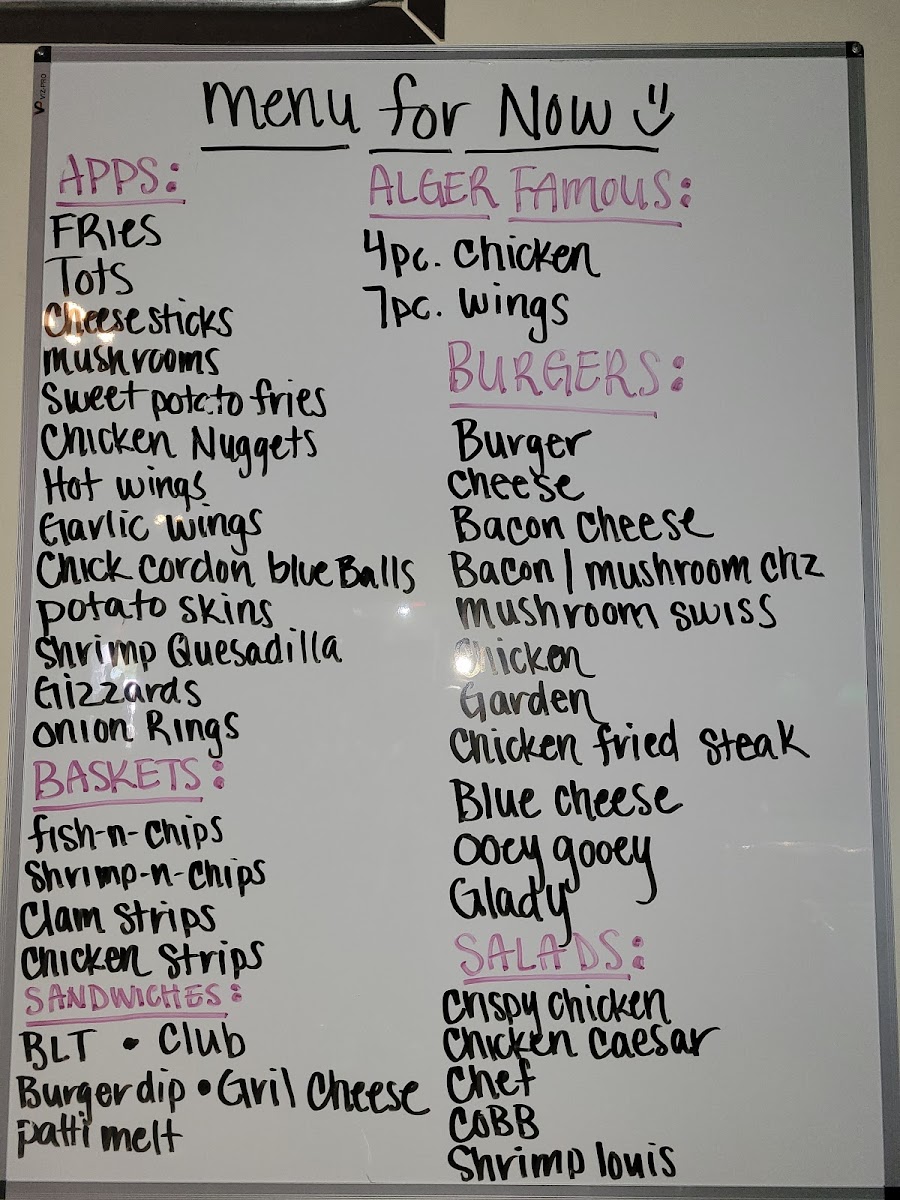 VIZ-PRO
Menu for Now
APPS:
FRies
Tots
Cheese sticks
mushrooms
Sweet potato fries
Chicken Nuggets
Hot wings
Garlic wings
Chick cordon blue Balls
potato skins
Shrimp Quesadilla
Gizzards
onion Rings
BASKETS:
fish-n-chips
Shrimp-n-chips
Clam Strips
Chicken Strips
SANDWICHES:
BLT • Club
Burger dip • Gril Cheese
patti melt
ALGER FAmous:
4pc. Chicken
7pc. wings
BURGERS:
Burger
cheese
Bacon cheese
Bacon | mushroom chz
mushroom swiss
Chicken
Garden
Chicken fried steak
Blue cheese
ooey gooey
Glady
SALADS:
Crispy chicken
Chicken caesar
Chef
COBB
Shrimp louis